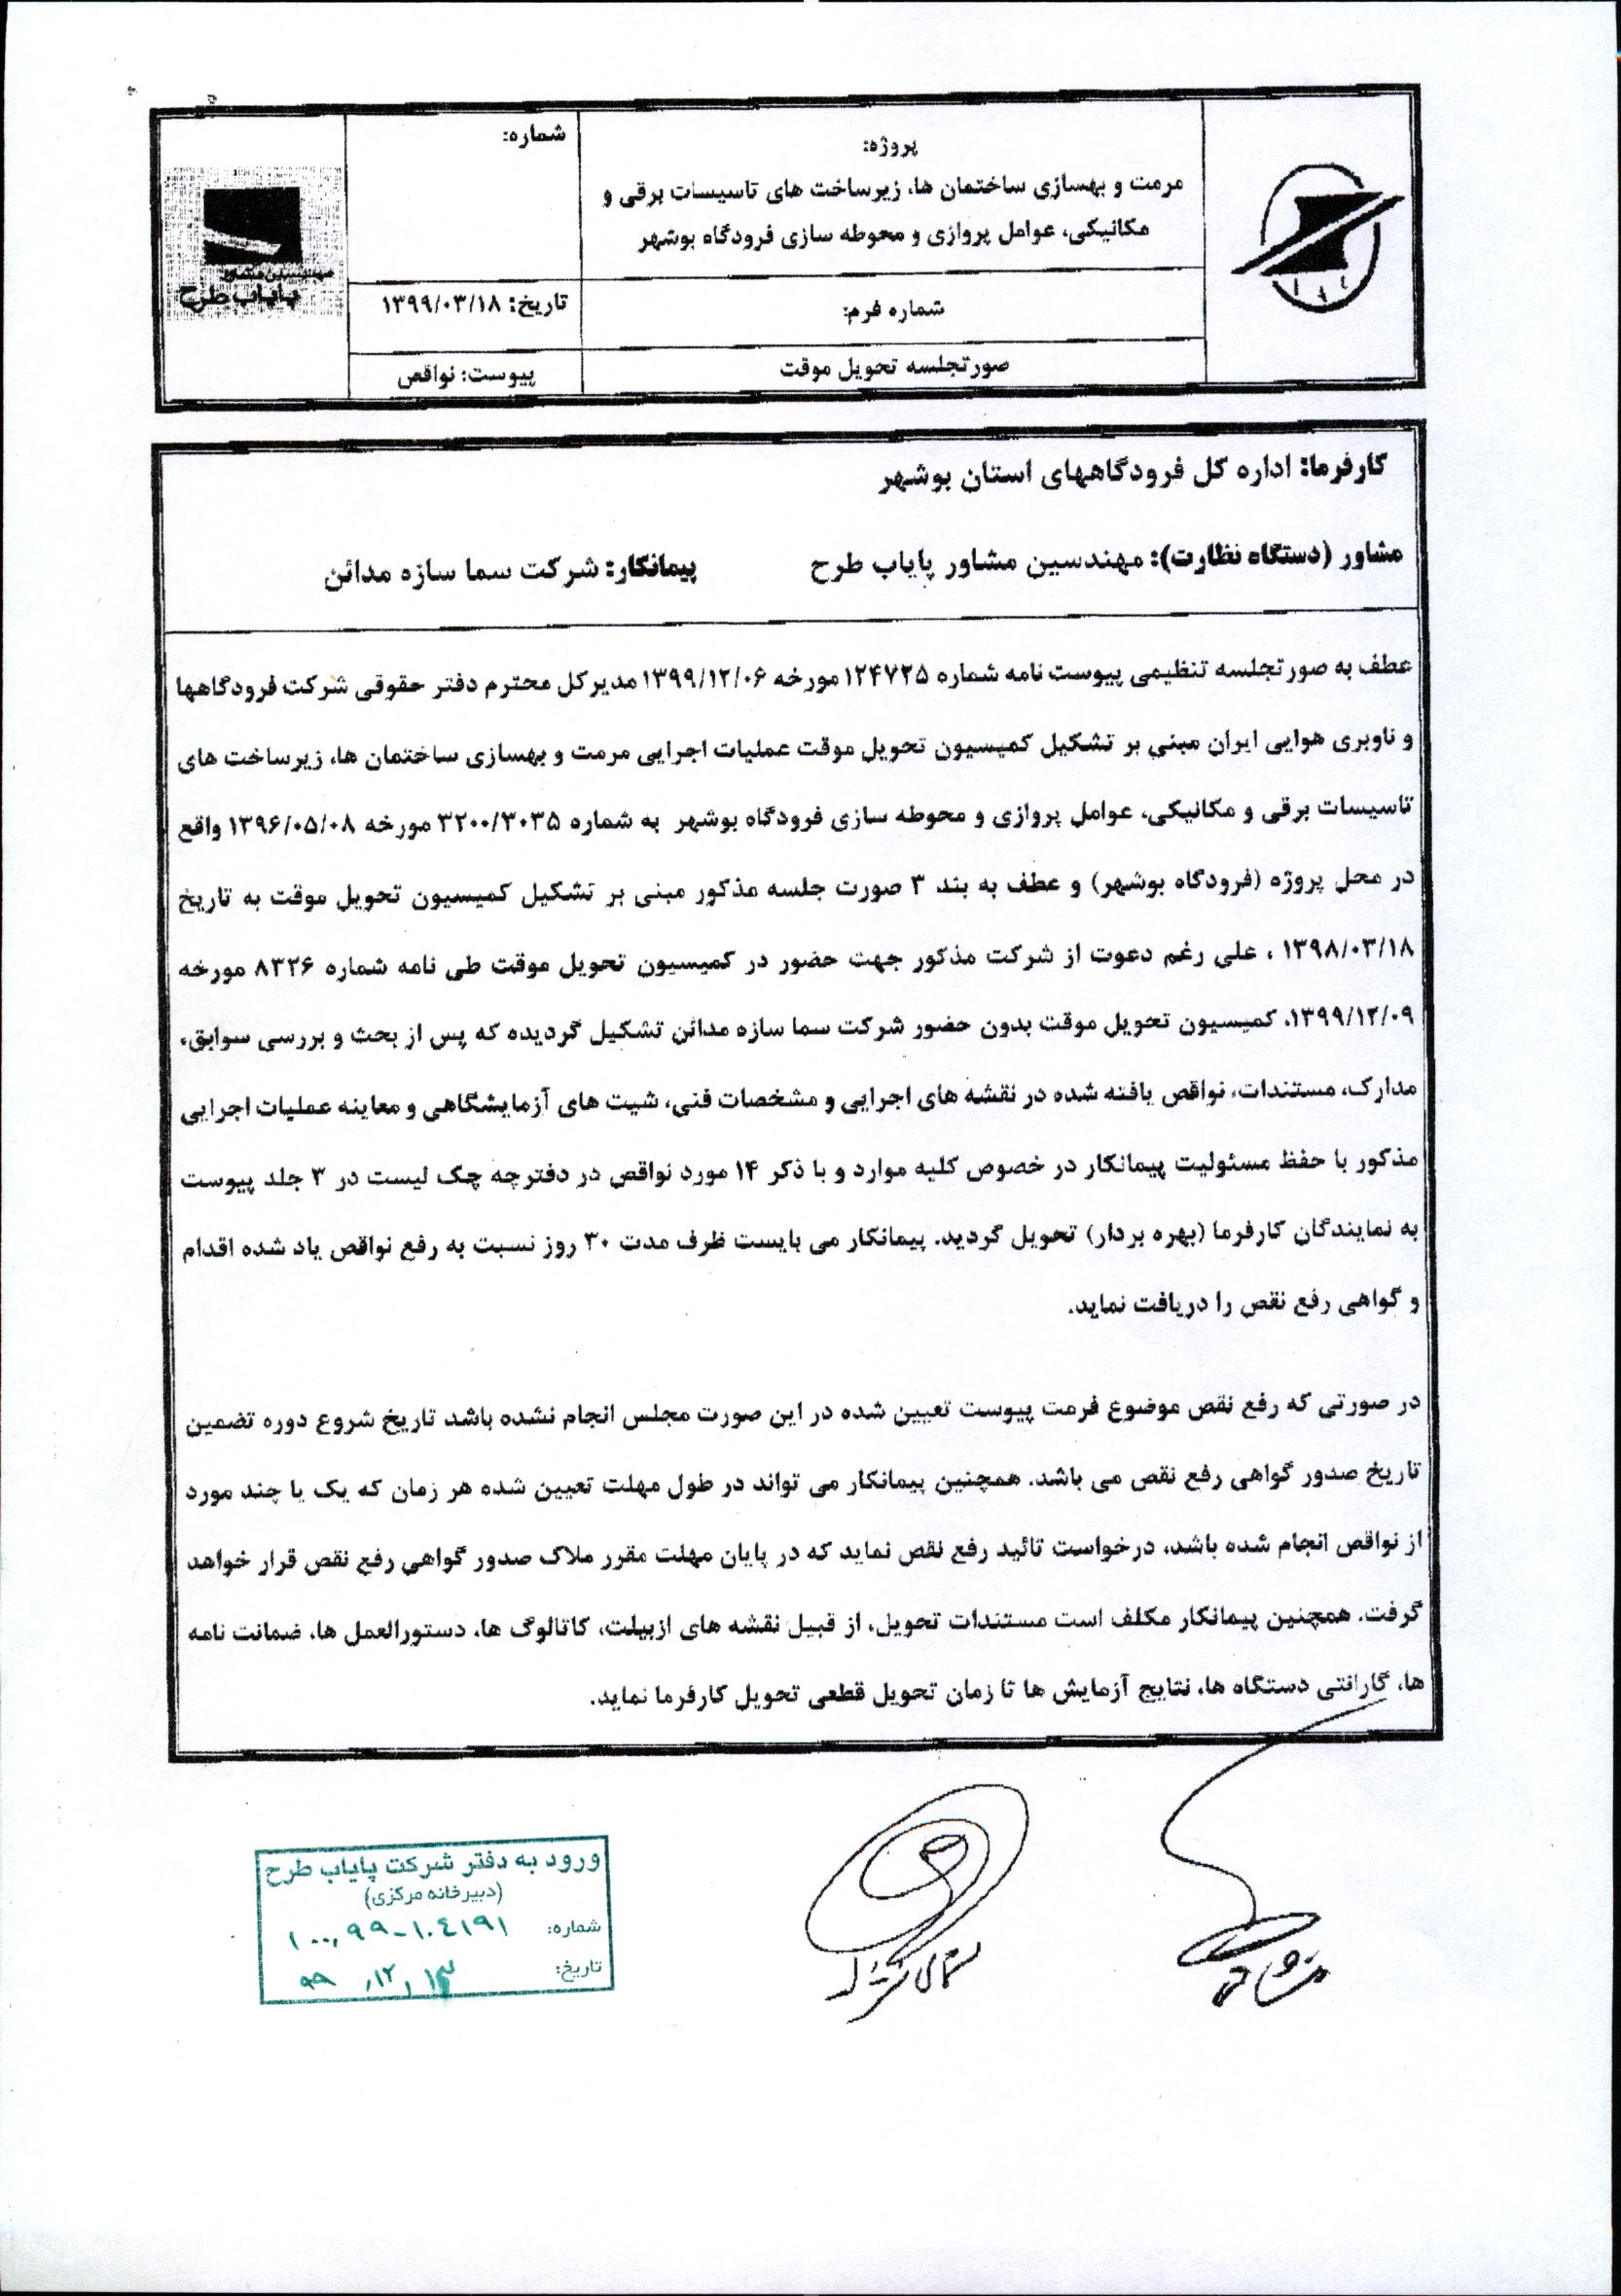 پروژه:
مرمت و بهسازی ساختمان ها، زیرساخت های تاسیسات برقی و
مکانیکی، عوامل پروازی و محوطه سازی فرودگاه بوشهر
شماره:
شماره فرم:
تاریخ: ۱۳۹۹/۰۳/۱۸
صورتجلسه تحویل موقت
پیوست: نواقص
مهندسین مشاور
پایاب طرح
کارفرما: اداره کل فرودگاههای استان بوشهر
مشاور (دستگاه نظارت): مهندسین مشاور پایاب طرح
پیمانکار: شرکت سما سازه مدائن
عطف به صورتجلسه تنظیمی پیوست نامه شماره ۱۲۴۷۲۵ مورخه ۱۳۹۹/۱۲/۰۶ مدیرکل محترم دفتر حقوقی شرکت فرودگاهها
و ناوبری هوایی ایران مبنی بر تشکیل کمیسیون تحویل موقت عملیات اجرایی مرمت و بهسازی ساختمان ها، زیرساخت های
تاسیسات برقی و مکانیکی، عوامل پروازی و محوطه سازی فرودگاه بوشهر به شماره ۳۲۰۰/۳۰۳۵ مورخه ۱۳۹۶/۰۵/۰۸ واقع
در محل پروژه (فرودگاه بوشهر) و عطف به بند ۳ صورت جلسه مذکور مبنی بر تشکیل کمیسیون تحویل موقت به تاریخ
۱۳۹۸/۰۳/۱۸ ، علی رغم دعوت از شرکت مذکور جهت حضور در کمیسیون تحویل موقت طی نامه شماره ۸۳۲۶ مورخه
۱۳۹۹/۱۲/۰۹، کمیسیون تحویل موقت بدون حضور شرکت سما سازه مدائن تشکیل گردیده که پس از بحث و بررسی سوابق،
مدارک، مستندات، نواقص یافته شده در نقشه های اجرایی و مشخصات فنی، شیت های آزمایشگاهی و معاینه عملیات اجرایی
مذکور با حفظ مسئولیت پیمانکار در خصوص کلیه موارد و با ذکر ۱۴ مورد نواقص در دفترچه چک لیست در ۳ جلد پیوست
به نمایندگان کارفرما (بهره بردار) تحویل گردید. پیمانکار می بایست ظرف مدت ۳۰ روز نسبت به رفع نواقص یاد شده اقدام
و گواهی رفع نقص را دریافت نماید.
در صورتی که رفع نقص موضوع فرمت پیوست تعیین شده در این صورت مجلس انجام نشده باشد تاریخ شروع دوره تضمین
تاریخ صدور گواهی رفع نقص می باشد. همچنین پیمانکار می تواند در طول مهلت تعیین شده هر زمان که یک یا چند مورد
از نواقص انجام شده باشد، درخواست تائید رفع نقص نماید که در پایان مهلت مقرر ملاک صدور گواهی رفع نقص قرار خواهد
گرفت. همچنین پیمانکار مکلف است مستندات تحویل، از قبیل نقشه های ازبیلت، کاتالوگ ها، دستورالعمل ها، ضمانت نامه
ها، گارانتی دستگاه ها، نتایج آزمایش ها تا زمان تحویل قطعی تحویل کارفرما نماید.
ورود به دفتر شرکت پایاب طرح
(دبیرخانه مرکزی)
شماره: ۱۰۰,۹۹-۱۰۴۱۹۱
تاریخ: ۹۹,۱۲,۱۳